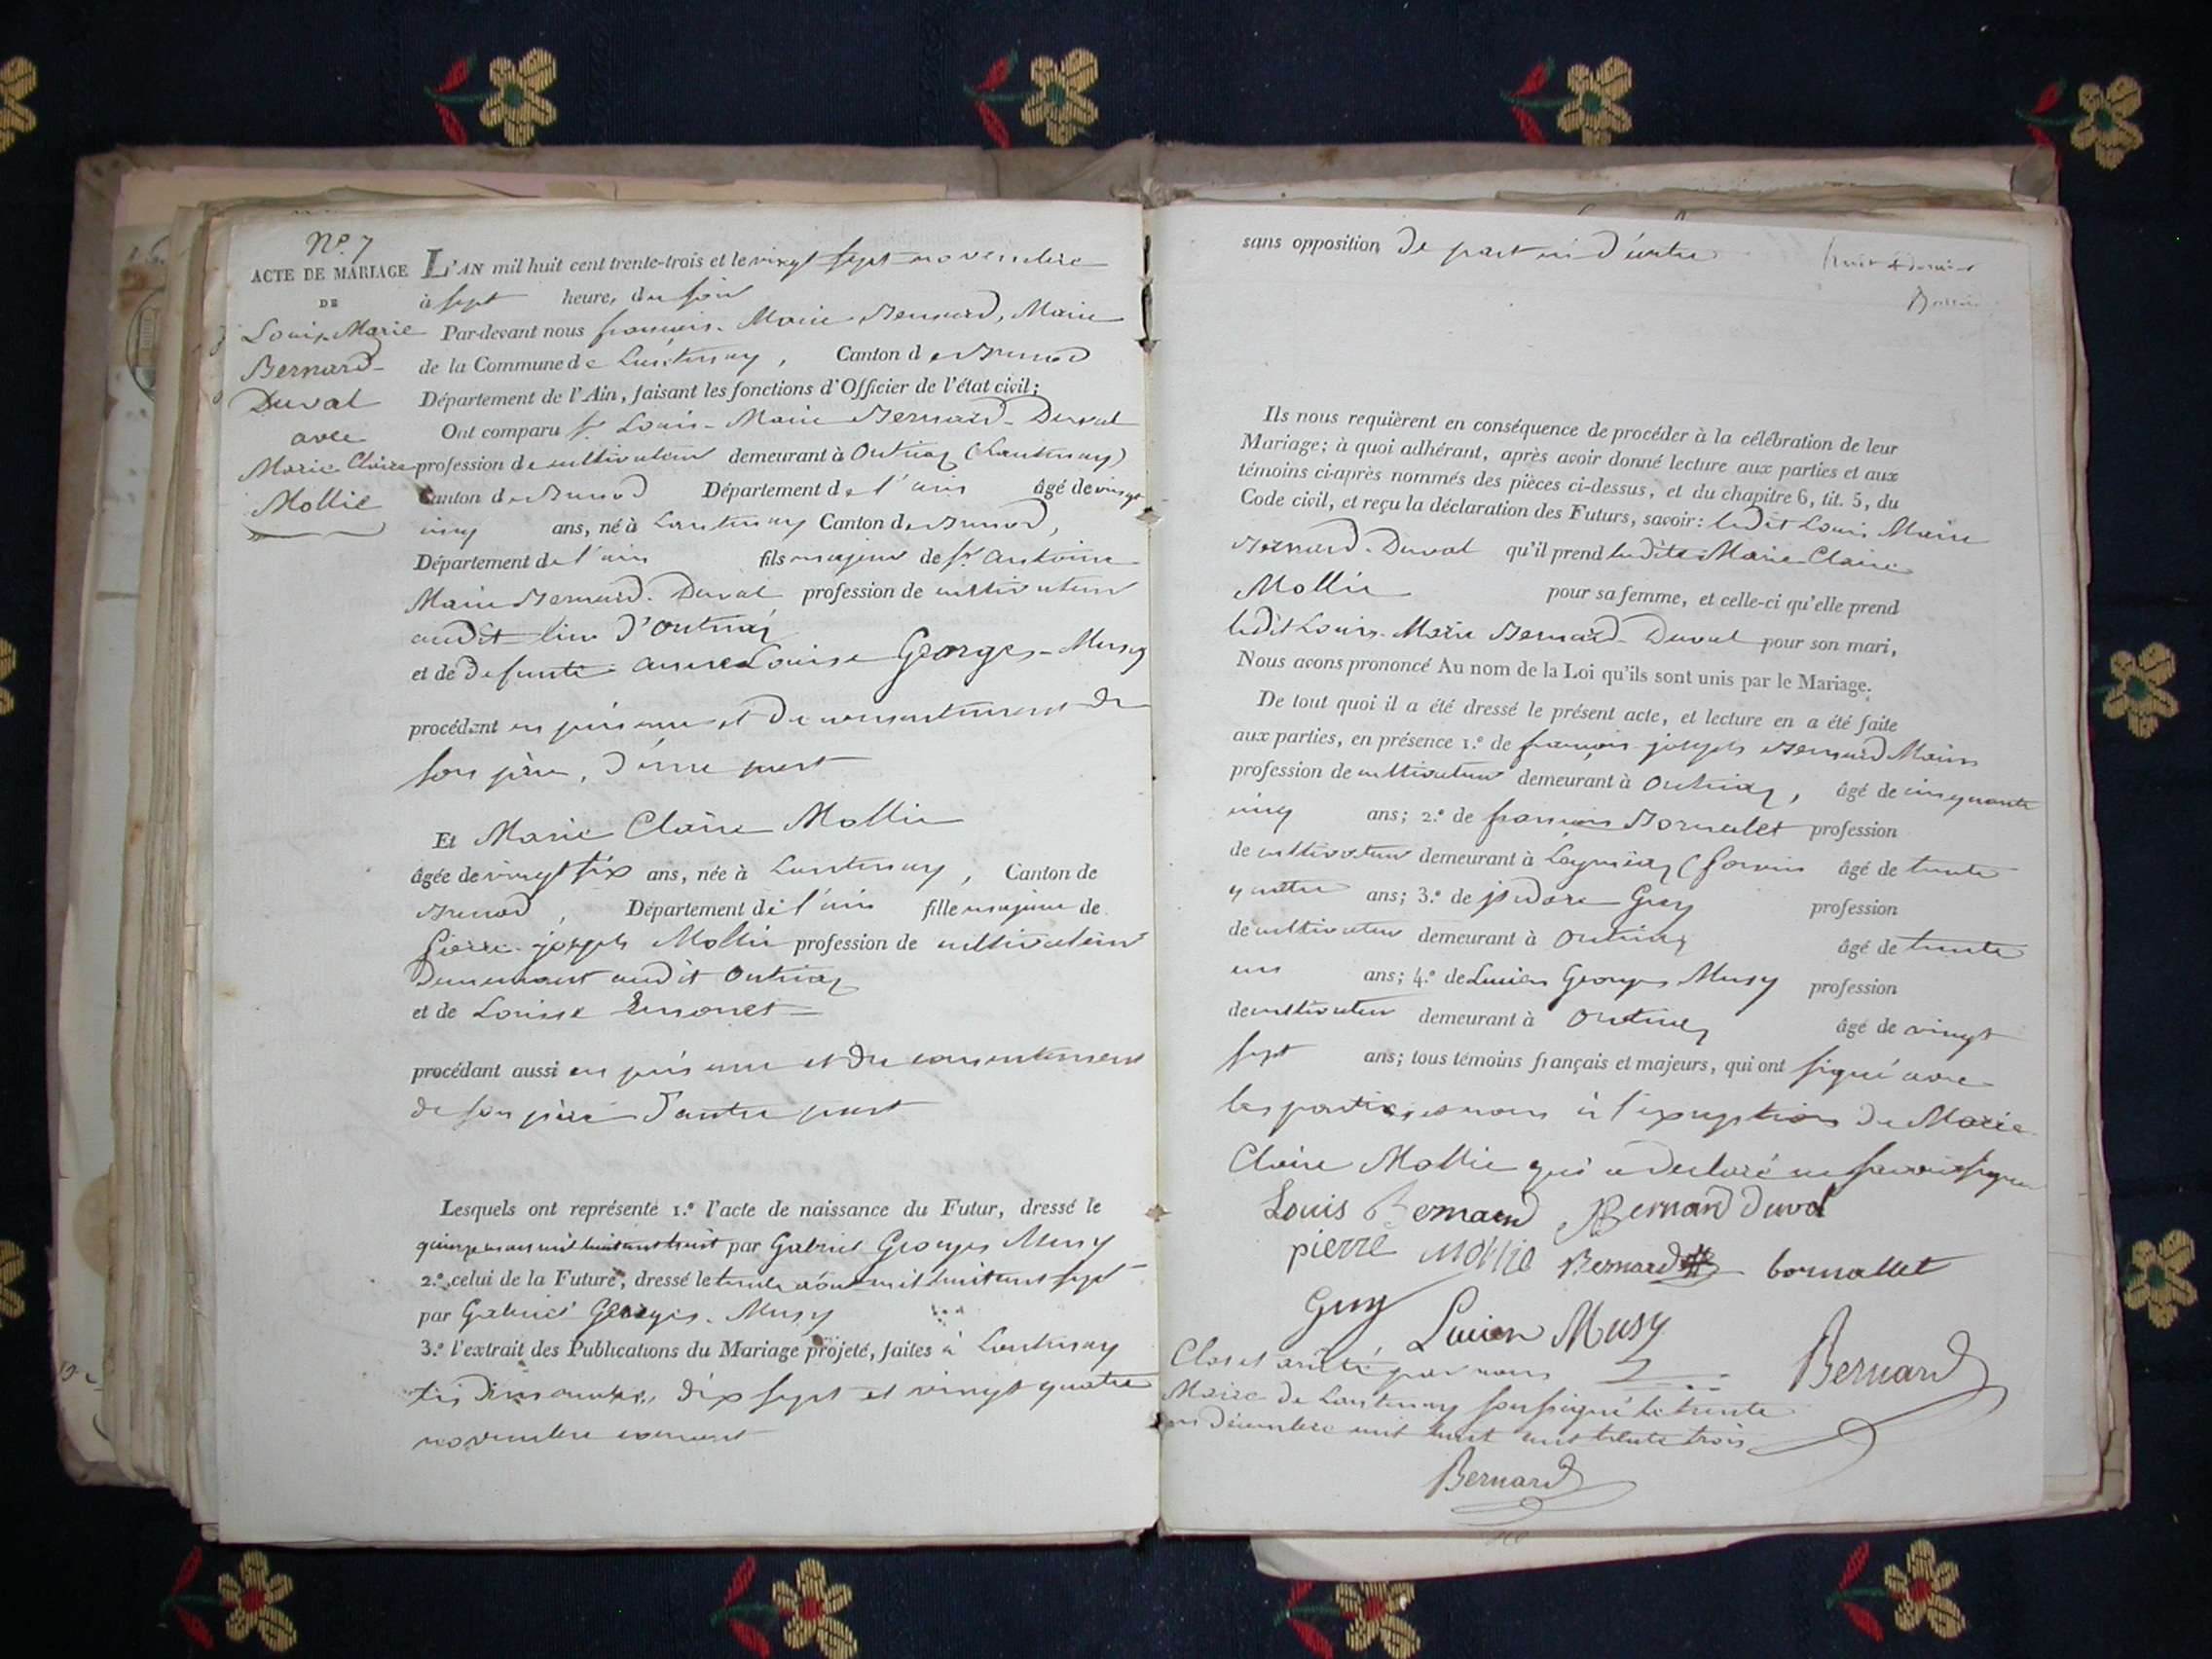 N.º 7
ACTE DE MARIAGE
DE
Louis-Marie
Bernard-
Duval
avec
Marie-Claire
Mollie
L'AN mil huit cent trente-trois et le vingt sept novembre
à sept heure, du soir
Par-devant nous françois-Marie Bernard, Maire
de la Commune de Lantenay, Canton de Brenod
Département de l'Ain, faisant les fonctions d'Officier de l'état civil;
Ont comparu Sr. Louis-Marie Bernard-Duval
profession de cultivateur demeurant à Outriaz (Lantenay)
Canton de Brenod Département de l'ain âgé de vingt
cinq ans, né à Lantenay Canton de Brenod,
Département de l'ain fils majeur de Sr. Antoine
Marie Bernard-Duval profession de cultivateur
audit lieu d'Outriaz
et de defunte Anne Louise Georges-Musy
procédant en personne et du consentement de
son père, d'une part
Et Marie Claire Mollie
âgée de vingt six ans, née à Lantenay, Canton de
Brenod, Département de l'ain fille majeure de
Pierre-joseph Mollie profession de cultivateur
Demeurant audit Outriaz
et de Louise
procédant aussi en personne et du consentement
de son père d'autre part
Lesquels ont représenté 1.º l'acte de naissance du Futur, dressé le
quinze mars mil huit cent huit par Gabriel Georges Musy
2.º celui de la Future, dressé le trente août mil huit cent sept
par Gabriel Georges-Musy
3.º l'extrait des Publications du Mariage projeté, faites à Lantenay
les dimanches, dix sept et vingt quatre
novembre courant
sans opposition de part ni d'autre
Ils nous requièrent en conséquence de procéder à la célébration de leur
Mariage; à quoi adhérant, après avoir donné lecture aux parties et aux
témoins ci-après nommés des pièces ci-dessus, et du chapitre 6, tit. 5, du
Code civil, et reçu la déclaration des Futurs, savoir: ledit Louis Marie
Bernard-Duval qu'il prend ladite Marie-Claire
Mollie pour sa femme, et celle-ci qu'elle prend
ledit Louis-Marie Bernard-Duval pour son mari,
Nous avons prononcé Au nom de la Loi qu'ils sont unis par le Mariage.
De tout quoi il a été dressé le présent acte, et lecture en a été faite
aux parties, en présence 1.º de françois-joseph Bernard
profession de cultivateur demeurant à Outriaz, âgé de cinquante
cinq ans; 2.º de françois Bornalet profession
de cultivateur demeurant à âgé de trente
quatre ans; 3.º de jsidore Guy profession
de cultivateur demeurant à Outriaz âgé de trente
un ans; 4.º de Lucien Georges Musy profession
de cultivateur demeurant à Outriaz âgé de vingt
sept ans; tous témoins français et majeurs, qui ont signé avec
les parties et nous à l'exception de Marie
Claire Mollie qui a declaré ne savoir signer
Louis Bernard Bernard duval
pierre mollie Bernard bornallet
Guy Lucien Musy
Bernard
Clos et arrêté par nous
Maire de Lantenay soussigné le trente
un décembre mil huit cent trente trois
Bernard